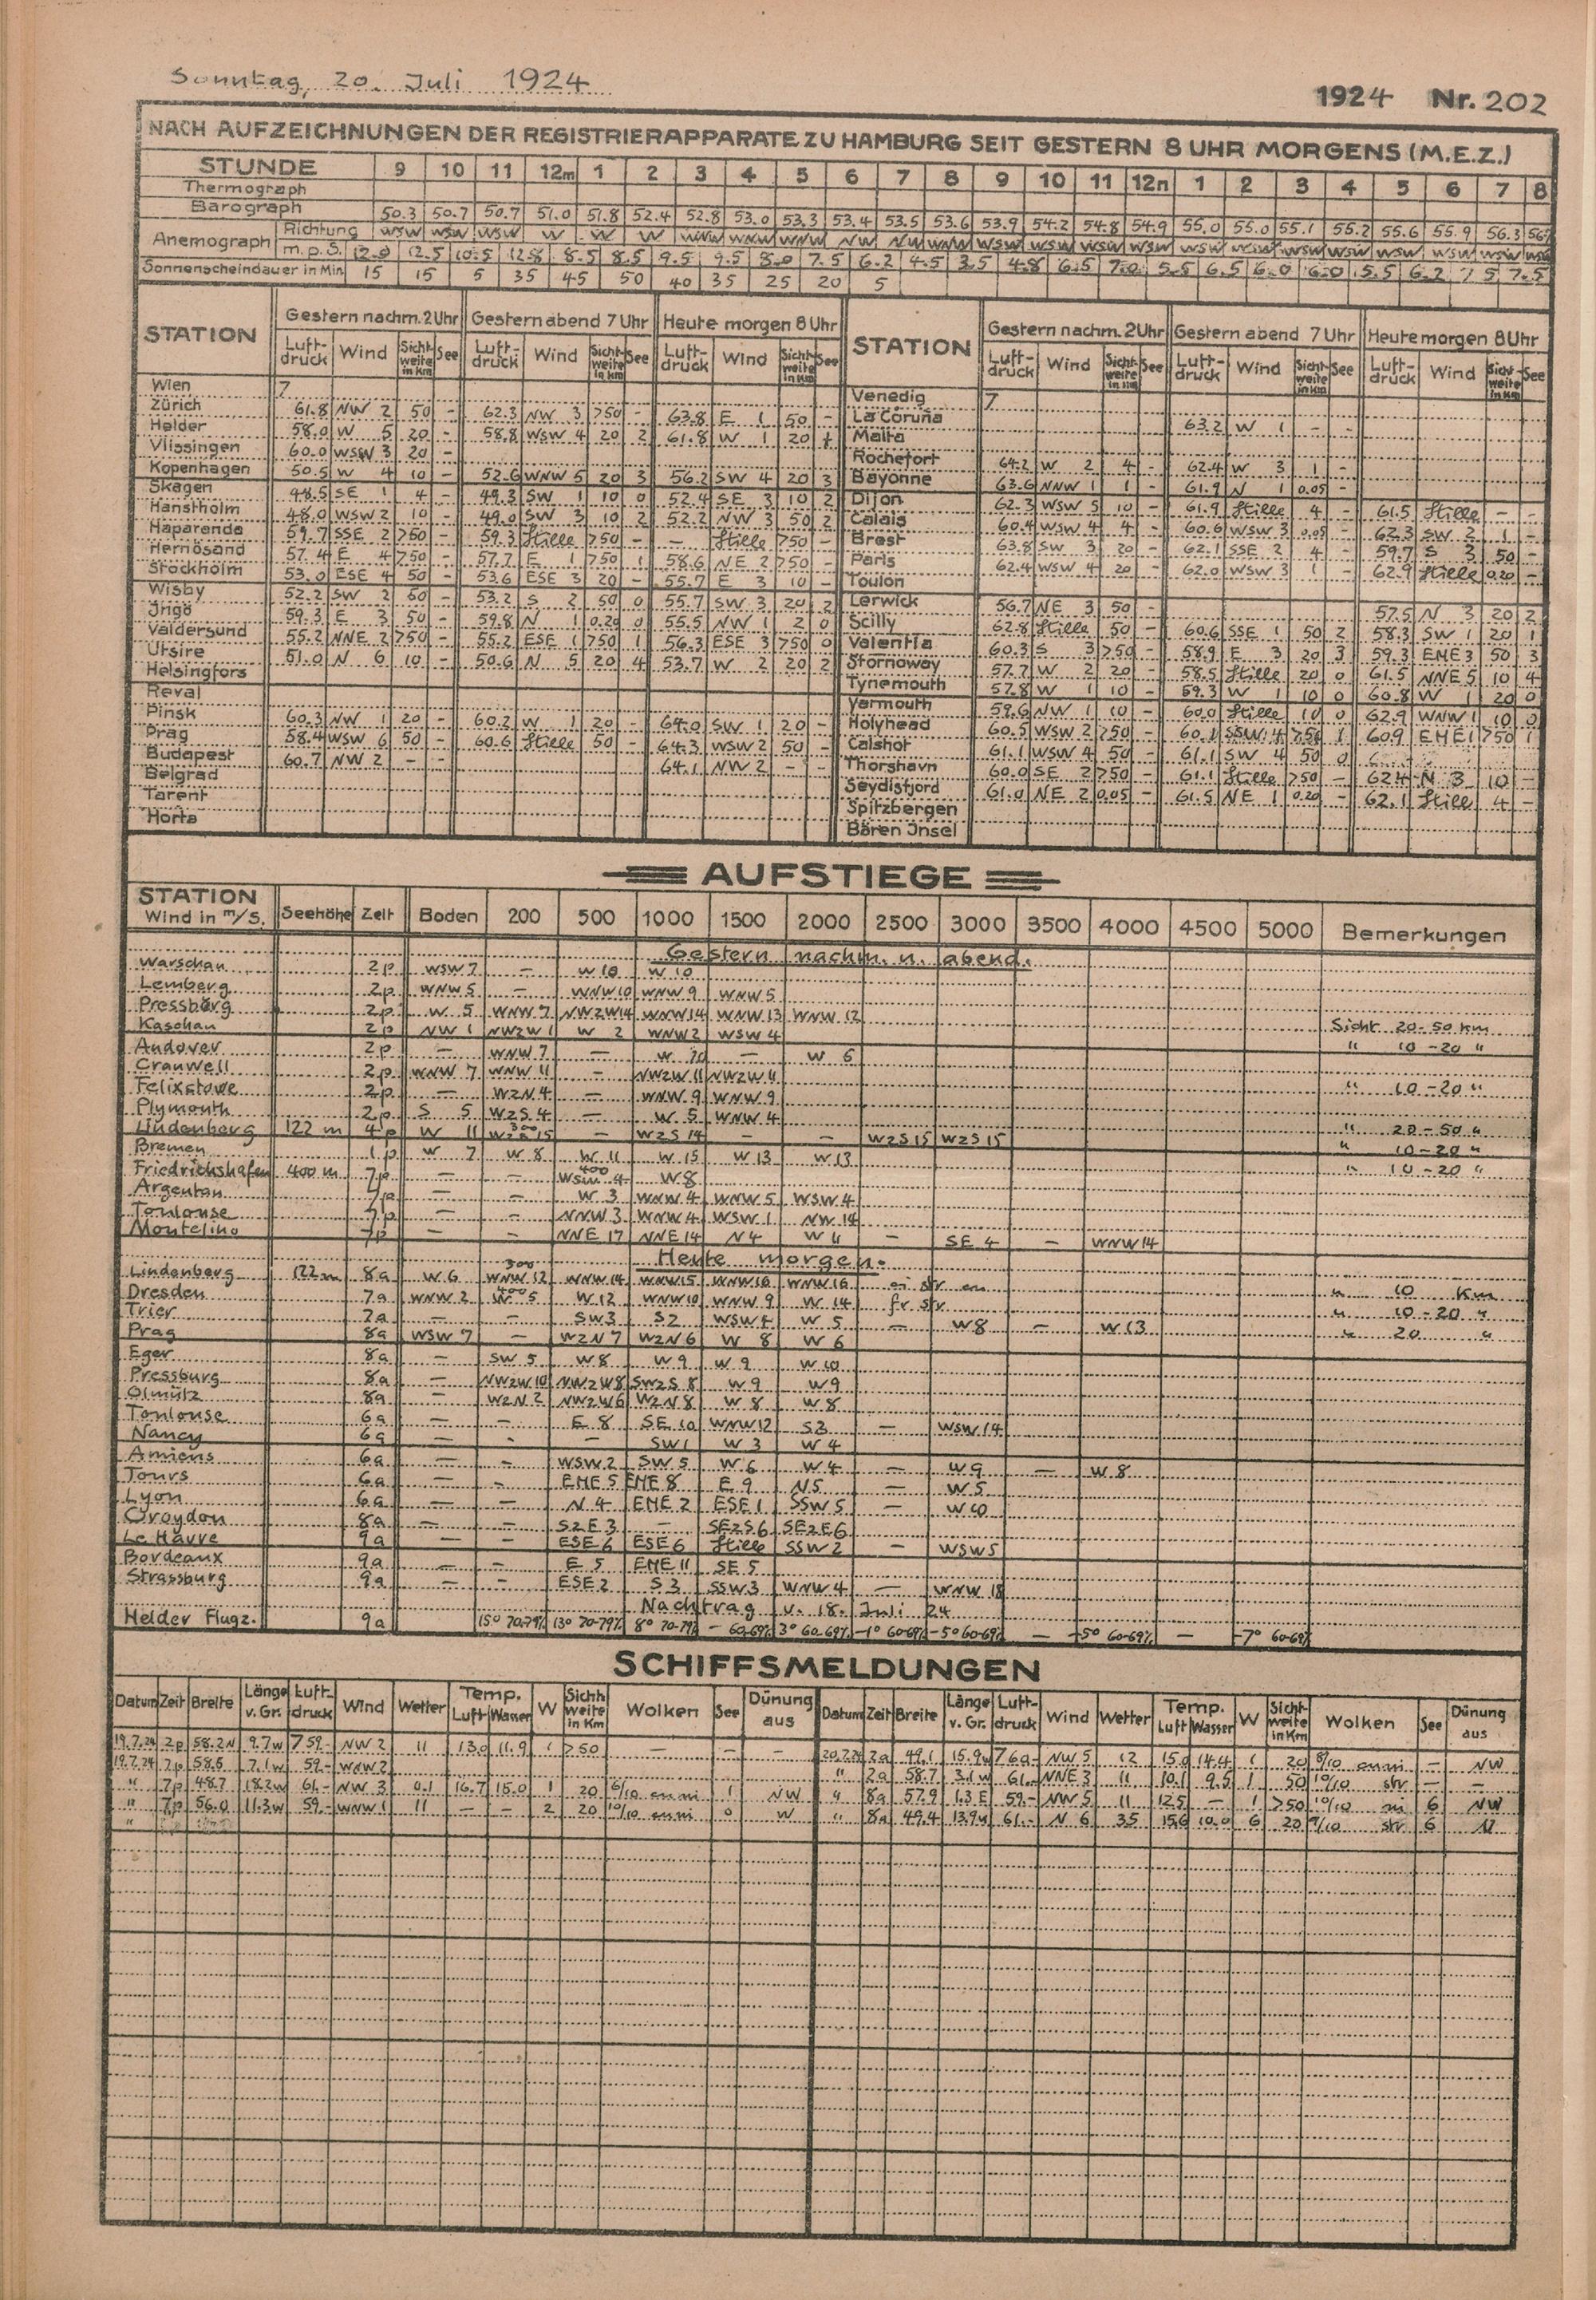 Sonntag, 20. Juli 1924
1924 Nr. 202
NACH AUFZEICHNUNGEN DER REGISTRIERAPPARATE ZU HAMBURG SEIT GESTERN 8 UHR MORGENS (M.E.Z.)
STUNDE 9 10 11 12m 1 2 3 4 5 6 7 8 9 10 11 12n 1 2 3 4 5 6 7 8
Thermograph
Barograph 50.3 50.7 50.7 51.0 51.8 52.4 52.8 53.0 53.3 53.4 53.5 53.6 53.9 54.2 54.8 54.9 55.0 55.0 55.1 55.2 55.6 55.9 56.3
Anemograph Richtung WSW WSW WSW W W W WNW WNW WNW NW NW WNW WSW WSW WSW WSW WSW WSW WSW WSW WSW WSW WSW WSW
m.p.S. 12.0 12.5 10.5 12.8 8.5 8.5 9.5 9.5 8.0 7.5 6.2 4.5 3.5 4.8 6.5 7.0 5.5 6.5 6.0 6.0 5.5 6.2 7.5 7.5
Sonnenscheindauer in Min 15 15 5 35 45 50 40 35 25 20 5
STATION Gestern nachm. 2 Uhr Gestern abend 7 Uhr Heute morgen 8 Uhr STATION Gestern nachm. 2 Uhr Gestern abend 7 Uhr Heute morgen 8 Uhr
Luftdruck Wind Sichtweite in km See Luftdruck Wind Sichtweite in km See Luftdruck Wind Sichtweite in km See Luftdruck Wind Sichtweite in km See Luftdruck Wind Sichtweite in km See Luftdruck Wind Sichtweite in km See
Wien 7
Zürich 61.8 NW 2 50 – 62.3 NW 3 >50 – 63.8 E 1 50 –
Helder 58.0 W 5 20 – 58.8 WSW 4 20 2 61.8 W 1 20
Vlissingen 60.0 WSW 3 20 –
Kopenhagen 50.5 W 4 10 – 52.6 WNW 5 20 3 56.2 SW 4 20 3
Skagen 48.5 SE 1 4 – 49.3 SW 1 10 0 52.4 SE 3 10 2
Hanstholm 48.0 WSW 2 10 – 49.0 SW 3 10 2 52.2 NW 3 50 2
Haparanda 59.7 SSE 2 >50 – 59.3 Stille >50 – – Stille >50 –
Hernösand 57.4 E 4 >50 – 57.7 E 1 >50 1 58.6 NE 2 >50 –
Stockholm 53.0 ESE 4 50 – 53.6 ESE 3 20 – 55.7 E 3 10 –
Wisby 52.2 SW 2 50 – 53.2 S 2 50 0 55.7 SW 3 20 2
Jngö 59.3 E 3 50 – 59.8 N 1 0.20 0 55.5 NW 1 2 0
Valdersund 55.2 NNE 2 >50 – 55.2 ESE 1 >50 1 56.3 ESE 3 >50 0
Utsire 51.0 N 6 10 – 50.6 N 5 20 4 53.7 W 2 20 2
Helsingfors
Reval
Pinsk 60.3 NW 1 20 – 60.2 W 1 20 – 64.0 SW 1 20 –
Prag 58.4 WSW 6 50 – 60.6 Stille 50 – 64.3 WSW 2 50 –
Budapest 60.7 NW 2 – – 64.1 NW 2 – –
Belgrad
Tarent
Horta
Venedig 7
La Coruña 63.2 W 1 – –
Malta
Rochefort 64.2 W 2 4 – 62.4 W 3 1 –
Bayonne 63.6 NNW 1 1 – 61.9 N 1 0.05 –
Dijon 62.3 WSW 5 10 – 61.9 Stille 4 – 61.5 Stille – –
Calais 60.4 WSW 4 4 – 60.6 WSW 3 0.05 – 62.3 SW 2 1 –
Brest 63.8 SW 3 20 – 62.1 SSE 2 4 – 59.7 S 3 50 –
Paris 62.4 WSW 4 20 – 62.0 WSW 3 1 – 62.9 Stille 0.20 –
Toulon
Lerwick 56.7 NE 3 50 – 57.5 N 3 20 2
Scilly 62.8 Stille 50 – 60.6 SSE 1 50 2 58.3 SW 1 20 1
Valentia 60.3 S 3 >50 – 58.9 E 3 20 3 59.3 ENE 3 50 3
Stornoway 57.7 W 2 20 – 58.5 Stille 20 0 61.5 NNE 5 10 4
Tynemouth 57.8 W 1 10 – 59.3 W 1 10 0 60.8 W 1 20 0
Yarmouth 59.6 NW 1 10 – 60.0 Stille 10 0 62.9 WNW 1 10 0
Holyhead 60.5 WSW 2 >50 – 60.1 SSW 4 >50 1 60.9 ENE 1 >50 1
Calshot 61.1 WSW 4 50 – 61.1 SW 4 50 0
Thorshavn 60.0 SE 2 >50 – 61.1 Stille >50 – 62.4 N 3 10 –
Seydisfjord 61.0 NE 2 0.05 – 61.5 NE 1 0.20 – 62.1 Still 4 –
Spitzbergen
Bären Jnsel
AUFSTIEGE
STATION Wind in m/S. Seehöhe Zeit Boden 200 500 1000 1500 2000 2500 3000 3500 4000 4500 5000 Bemerkungen
Gestern nachm. u. abend.
Warschau 2p WSW 7 – W 10 W 10
Lemberg 2p WNW 5 – WNW 10 WNW 9 WNW 5
Pressburg 2p W 5 WNW 7 NWzW 14 WNW 14 WNW 13 WNW 12
Kaschau 2p NW 1 NWzW 1 W 2 WNW 2 WSW 4 Sicht 20-50 Km
Andover 2p – WNW 7 – W 10 – W 6 " 10-20 "
Cranwell 2p WNW 7 WNW 11 – NWzW 11 NWzW 11
Felixstowe 2p – WzN 4 – WNW 9 WNW 9 " 10-20 "
Plymouth 2p S 5 WzS 4 – W 5 WNW 4
Lindenberg 122 m 4p W 11 300 WzS 15 – WzS 14 – – WzS 15 WzS 15 " 20-50 "
Bremen 1p W 7 W 8 W 11 W 15 W 13 W 13 " 10-20 "
Friedrichshafen 400 m 7p – – 400 WSW 4 W 8 " 10-20 "
Argentan 7p – – W 3 WNW 4 WNW 5 WSW 4
Toulouse 7p – – NNW 3 WNW 4 WSW 1 NW 14
Montelino 7p – – NNE 17 NNE 14 N 4 W 11 – SE 4 – WNW 14
Heute morgen.
Lindenberg 122 m 8a W 6 300 WNW 12 WNW 14 WNW 15 WNW 16 WNW 16 ci str cu " 10 Km
Dresden 7a WNW 2 400 W 5 W 12 WNW 10 WNW 9 W 14 fr str " 10-20 "
Trier 7a – – SW 3 S 2 WSW 4 W 5 – W 8 – W 13 " 20 "
Prag 8a WSW 7 – WzN 7 WzN 6 W 8 W 6
Eger 8a – SW 5 W 8 W 9 W 9 W 10
Pressburg 8a – NWzW 10 NWzW 8 SWzS 8 W 9 W 9
Olmütz 8a – WzN 2 NWzW 6 WzN 8 W 8 W 8
Toulouse 6a – – E 8 SE 10 WNW 12 S 3 – WSW 14
Nancy 6a – – – SW 1 W 3 W 4
Amiens 6a – – WSW 2 SW 5 W 6 W 4 – W 9 – W 8
Tours 6a – – ENE 5 ENE 8 E 9 N 5 – W 5
Lyon 6a – – N 4 ENE 2 ESE 1 SSW 5 – W 10
Croydon 8a – – SzE 3 – SEzS 6 SEzE 6
Le Havre 9a – – ESE 6 ESE 6 Stille SSW 2 – WSW 5
Bordeaux 9a – – E 5 ENE 11 SE 5
Strassburg 9a – – ESE 2 S 3 SSW 3 WNW 4 – WNW 18
Nachtrag v. 18. Juli 24
Helder Flugz. 9a 15° 70-79% 13° 70-79% 8° 70-79% – 60-69% 3° 60-69% -1° 60-69% -5° 60-69% – -5° 60-69% – -7° 60-69%
SCHIFFSMELDUNGEN
Datum Zeit Breite Länge v. Gr. Luftdruck Wind Wetter Temp. Luft Wasser W Sichtweite in Km Wolken See Dünung aus Datum Zeit Breite Länge v. Gr. Luftdruck Wind Wetter Temp. Luft Wasser W Sichtweite in Km Wolken See Dünung aus
19.7.24 2p 58.2 N 9.7 w 759.- NW 2 11 13.0 11.9 1 >50 – – –
19.7.24 7p 58.5 7.1 w 59.- WNW 2
" 7p 48.7 18.2 w 61.- NW 3 0.1 16.7 15.0 1 20 6/10 cu ni 1 NW
" 7p 56.0 11.3 w 59.- WNW 1 11 – – 2 20 10/10 cu ni 0 W
"
20.7.24 2a 49.1 15.9 w 760.- NW 5 12 15.0 14.4 1 20 8/10 cu ni – NW
" 2a 58.7 3.1 w 61.- NNE 3 11 10.1 9.5 1 50 10/10 str – –
" 8a 57.9 1.3 E 59.- NW 5 11 12.5 – 1 >50 10/10 ni 6 NW
" 8a 49.4 13.9 w 61.- N 6 35 15.6 10.0 6 20 9/10 str 6 N